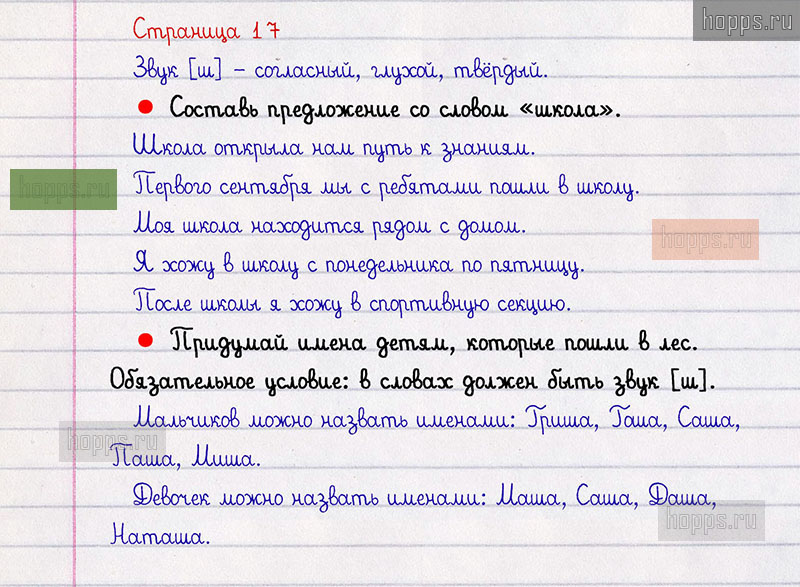 hopps.ru
Страница 17
Звук [ш] – согласный, глухой, твёрдый.
Составь предложение со словом «школа».
Школа открыла нам путь к знаниям.
hopps.ru
Первого сентября мы с ребятами пошли в школу.
Моя школа находится рядом с домом.
hopps.ru
Я хожу в школу с понедельника по пятницу.
После школы я хожу в спортивную секцию.
Придумай имена детям, которые пошли в лес.
Обязательное условие: в словах должен быть звук [ш].
Мальчиков можно назвать именами: Гриша, Гоша, Саша,
hopps.ru
Паша, Миша.
Девочек можно назвать именами: Маша, Саша, Даша,
hopps.ru
Наташа.